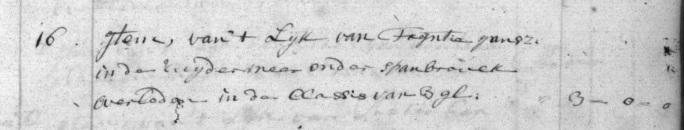 16. Item, van 't Lyk van Fegntie gansz.
in de Zuyder meer onder spanbroeck
overleden in de Classis van 3 gl: 3 - 0 - 0